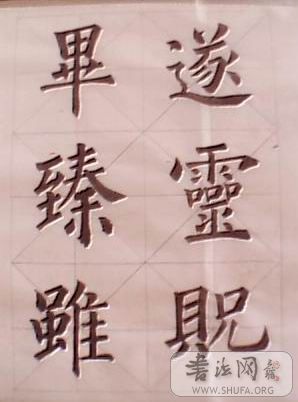 遂靈貺
畢臻雖
書法网
WWW.SHUFA.ORG